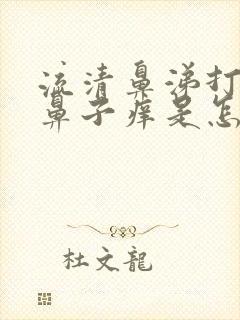 流清鼻涕打
鼻子痒是怎
杜文龍